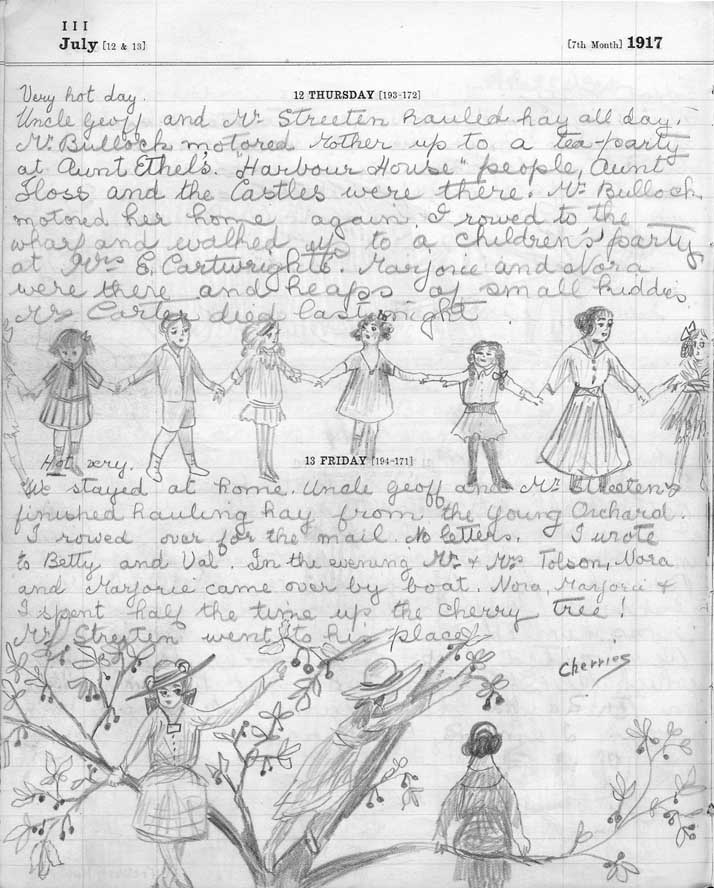 III
July [12 & 13]
[7th Month] 1917
Very hot day.
12 THURSDAY [193-172]
Uncle Geoff and Mr Streeten hauled hay all day.
Mr Bullock motored Mother up to a tea-party
at Aunt Ethel's. "Harbour House" people, Aunt
Floss and the Castles were there. Mr Bullock
motored her home again. I rowed to the
wharf and walked up to a children's party
at Mrs E. Cartwright's. Marjorie and Nora
were there and heaps of small kiddies
Mr Carter died last night
Hot very.
13 FRIDAY [194-171]
We stayed at home. Uncle Geoff and Mr Streeten
finished hauling hay from the Young Orchard.
I rowed over for the mail. No letters. I wrote
to Betty and Val. In the evening Mr & Mrs Tolson, Nora
and Marjorie came over by boat. Nora, Marjorie &
I spent half the time up the cherry tree!
Mr Streeten went to his place.
Cherries